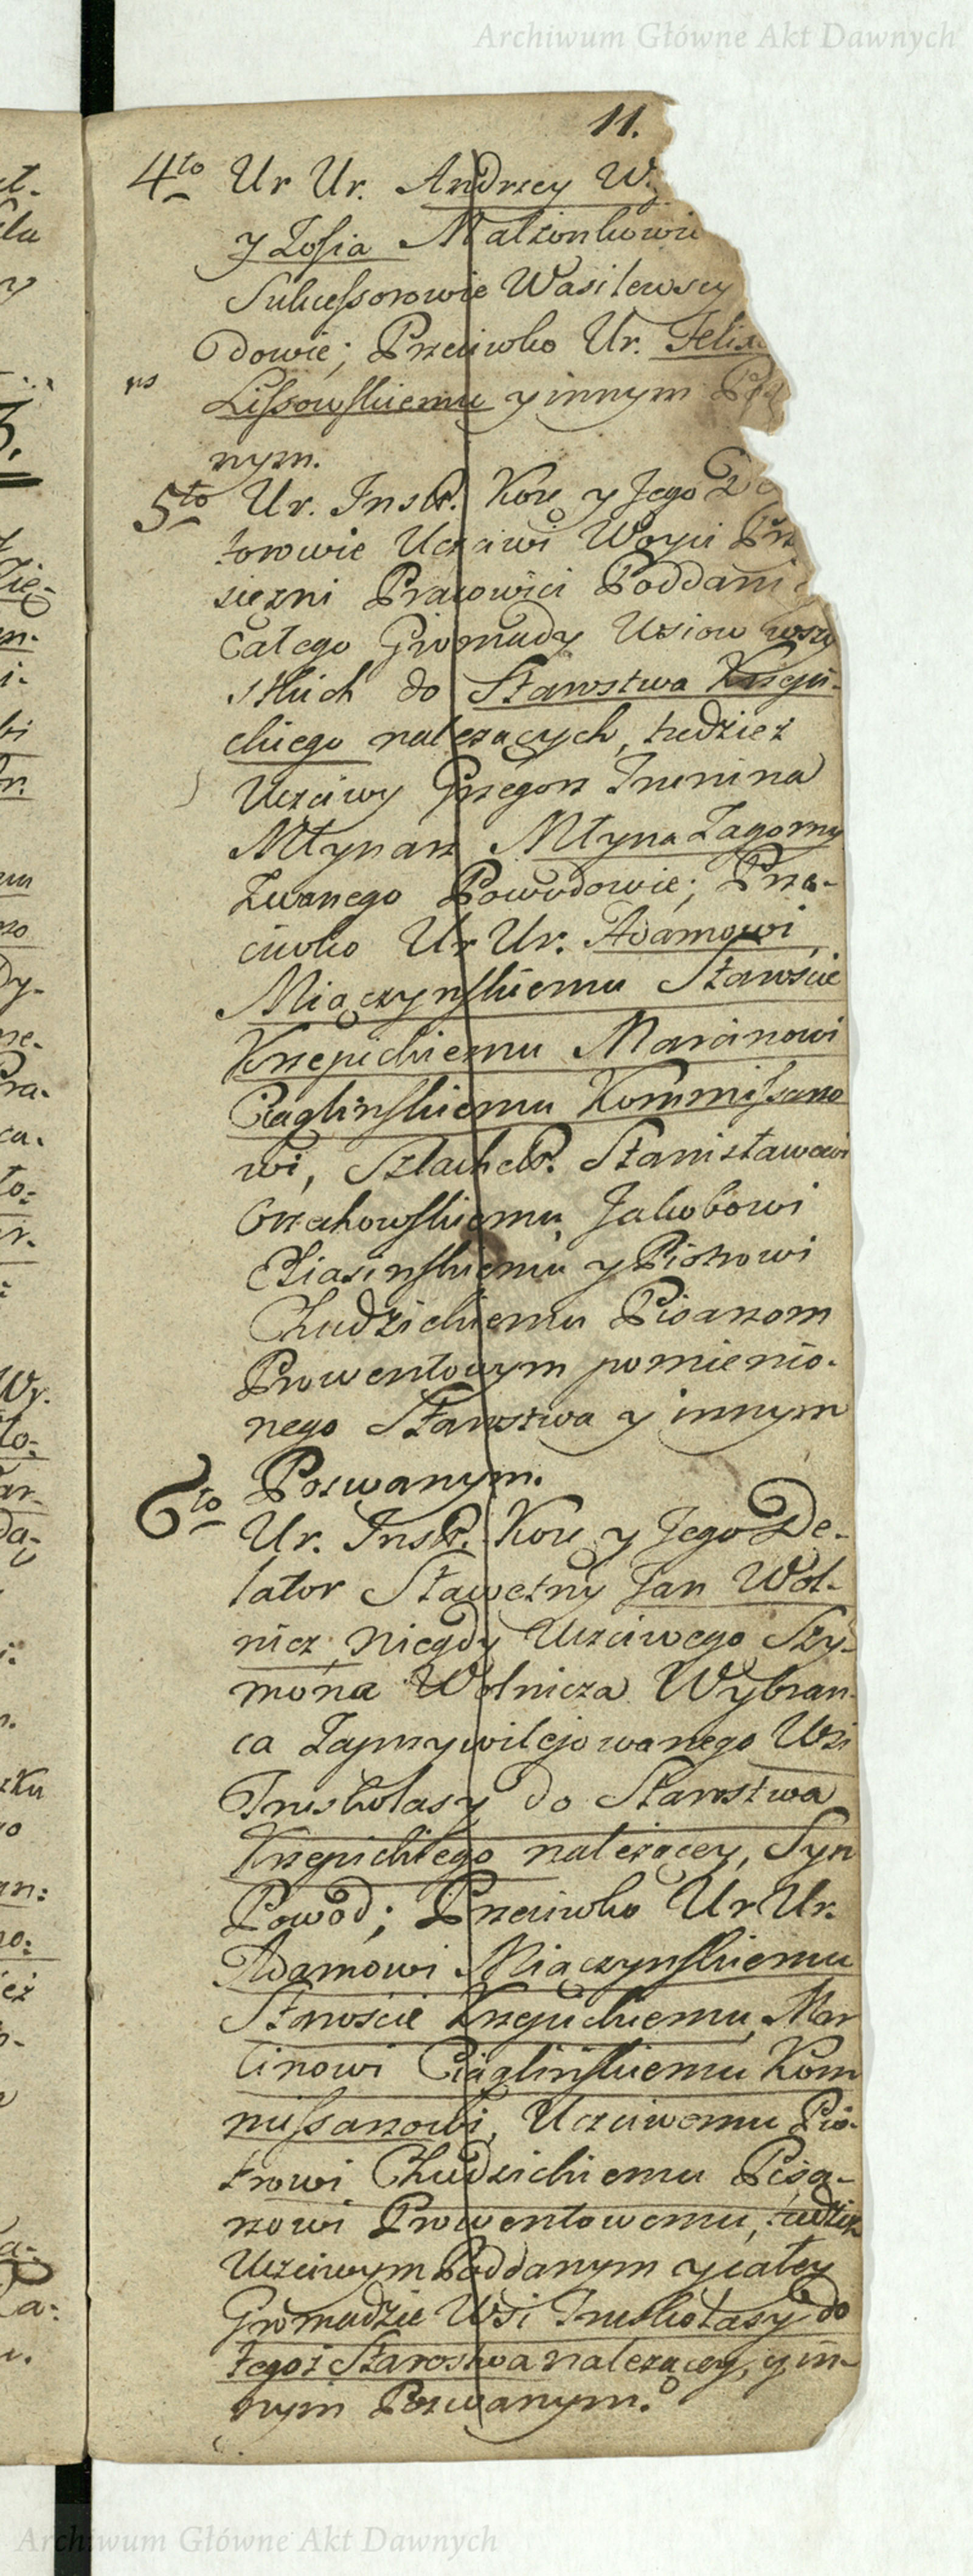 Archiwum Główne Akt Dawnych
11.
4to Ur Ur. Andrzey W.
y Zofia Małżonkowie
Sukcessorowie Wasilewscy
dowie; Przeciwko Ur. Felix
Lissowskiemu y innym
nym.
5to Ur. Inst. Kor. y Jego De
torowie Uczciwi Woyci Prz
sięzni Pracowici Poddani
całego Gromady Wsiow wszy
stkich do Starostwa Krzepi-
ckiego należących, tudzież
Uczciwy Grzegorz
Młynarz Młyna Zagorny
Zwanego Powodowie; Prze-
ciwko Ur Ur. Adamowi
Miączynskiemu Staroscie
Krzepickiemu Marcinowi
Ciąglinskiemu Kommissarzo
wi, Szlachet. Stanisławowi
Orzechowskiemu Jakobowi
y Piotrowi
Chudzickiemu Pisarzom
Prowentowym pomienio-
nego Starostwa y innym
Pozwanym.
6to
Ur. Inst. Kor. y Jego De-
lator Sławetny Jan Wol-
nicz, Niegdy Uczciwego Szy-
mona Wolnicza Wybran-
ca Zaprzywilejowanego Wsi
Truskolasy do Starostwa
Krzepickiego należącey, Syn
Powod; Przeciwko Ur Ur.
Adamowi Miączynskiemu
Staroscie Krzepickiemu, Mar
cinowi Ciąglinskiemu Kom
missarzowi, Uczciwemu Pio-
trowi Chudzickiemu Pisa-
rzowi Prowentowemu, tudzież
Uczciwym Poddanym y całey
Gromadzie Wsi Truskolasy do
tegoż Starostwa należącey, y in-
nym Pozwanym.
Archiwum Główne Akt Dawnych